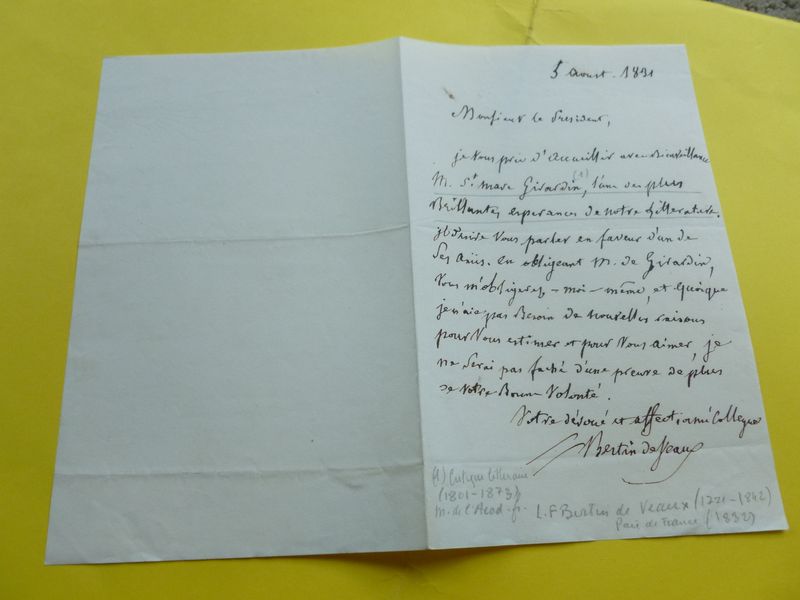 5 aoust. 1831
Monsieur le President,
je vous prie d'accueillir avec Bienveillance
M. St marc Girardin, (1) l'une des plus
Brillantes esperances de notre litterature.
il desire vous parler en faveur d'un de
ses amis. en obligeant M. de Girardin,
vous m'obligerez - moi - même, et quoique
je n'aie pas Besoin de nouvelles raisons
pour vous estimer et pour vous aimer, je
ne serai pas faché d'une preuve de plus
de votre Bonne volonté.
Votre dévoué et affectionné Collegue
Bertin de Veaux
(1) Critique litteraire
(1801-1873)
m. de l'Acad. fr.
L.F Bertin de Veaux (1771-1842)
Pair de France (1832)